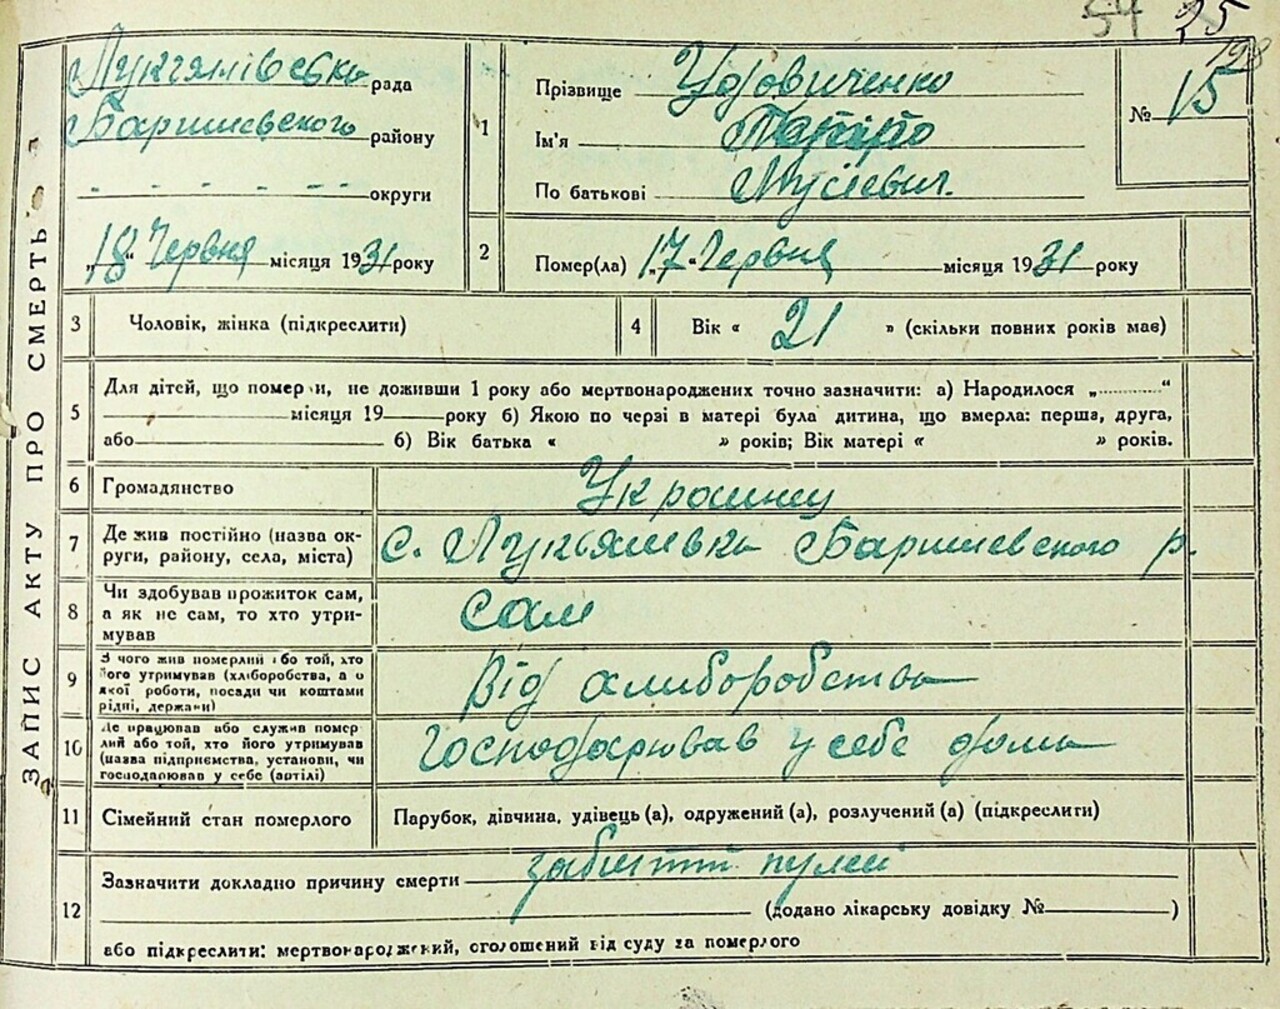 54 25
198
ЗАПИС АКТУ ПРО СМЕРТЬ
Лукянівська рада
Баришевського району
- - - - - - округи
„18“ Червня місяця 1931 року
1
Прізвище Удовиченко
Ім'я
По батькові Мусієвич.
№ 15
2
Помер(ла) „17“ Червня місяця 1931 року
3 Чоловік, жінка (підкреслити)
4 Вік « 21 » (скільки повних років має)
5
Для дітей, що померли, не доживши 1 року або мертвонароджених точно зазначити: а) Народилося „.........“
місяця 19 року б) Якою по черзі в матері була дитина, що вмерла: перша, друга,
або б) Вік батька « » років; Вік матері « » років.
6 Громадянство Украинец
7 Де жив постійно (назва ок-
руги, району, села, міста) с. Лукьяневка Баришевського р.
8 Чи здобував прожиток сам,
а як не сам, то хто утри-
мував сам
9 З чого жив померлий або той, хто
його утримував (хліборобства, а о
якої роботи, посади чи коштами
рідні, держави) Від хлиборобства
10 Де працював або служив помер
лий або той, хто його утримував
(назва підприємства, установи, чи
господарював у себе (артілі) Господарював у себе дома
11 Сімейний стан померлого Парубок, дівчина, удівець (а), одружений (а), розлучений (а) (підкреслити)
12
Зазначити докладно причину смерти забиттй пулей
(додано лікарську довідку № )
або підкреслити: мертвонароджений, оголошений від суду за померлого